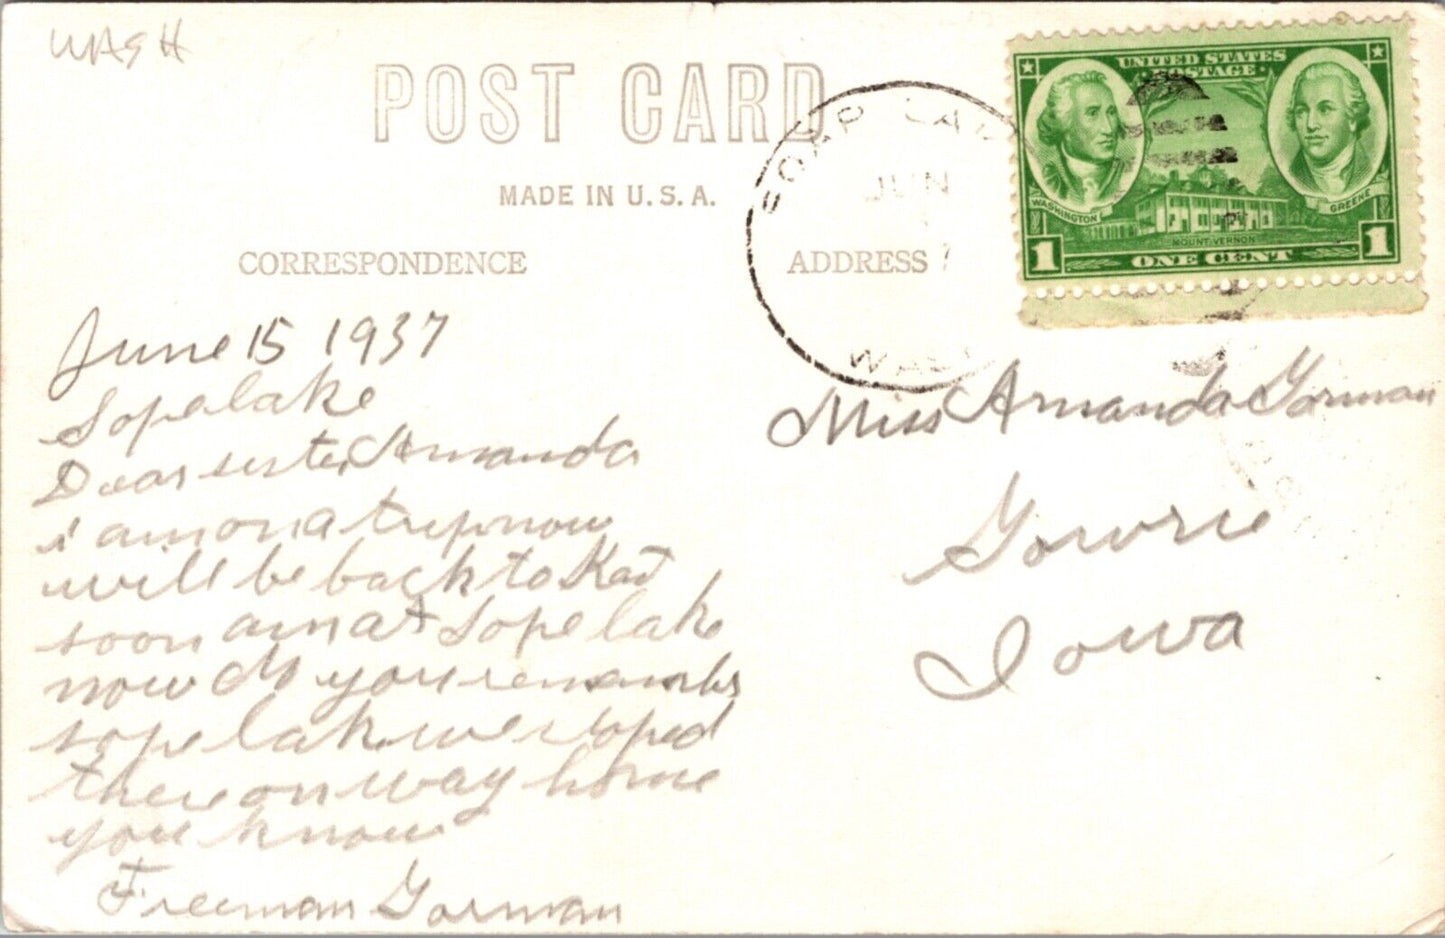 WASH
POST CARD
MADE IN U.S.A.
CORRESPONDENCE
ADDRESS
UNITED STATES
POSTAGE
WASHINGTON
GREENE
MOUNT VERNON
1 ONE CENT 1
SOAP LAK
JUN
WAS
June 15 1937
Sope lake
Dear sister Amanda
i am on a trip now
will be back to Kat
soon am at Sope lake
now do you remember
sope lake we stoped
there on way home
you know
Freeman Gorman
Miss Amanda Gorman
Gowrie
Iowa